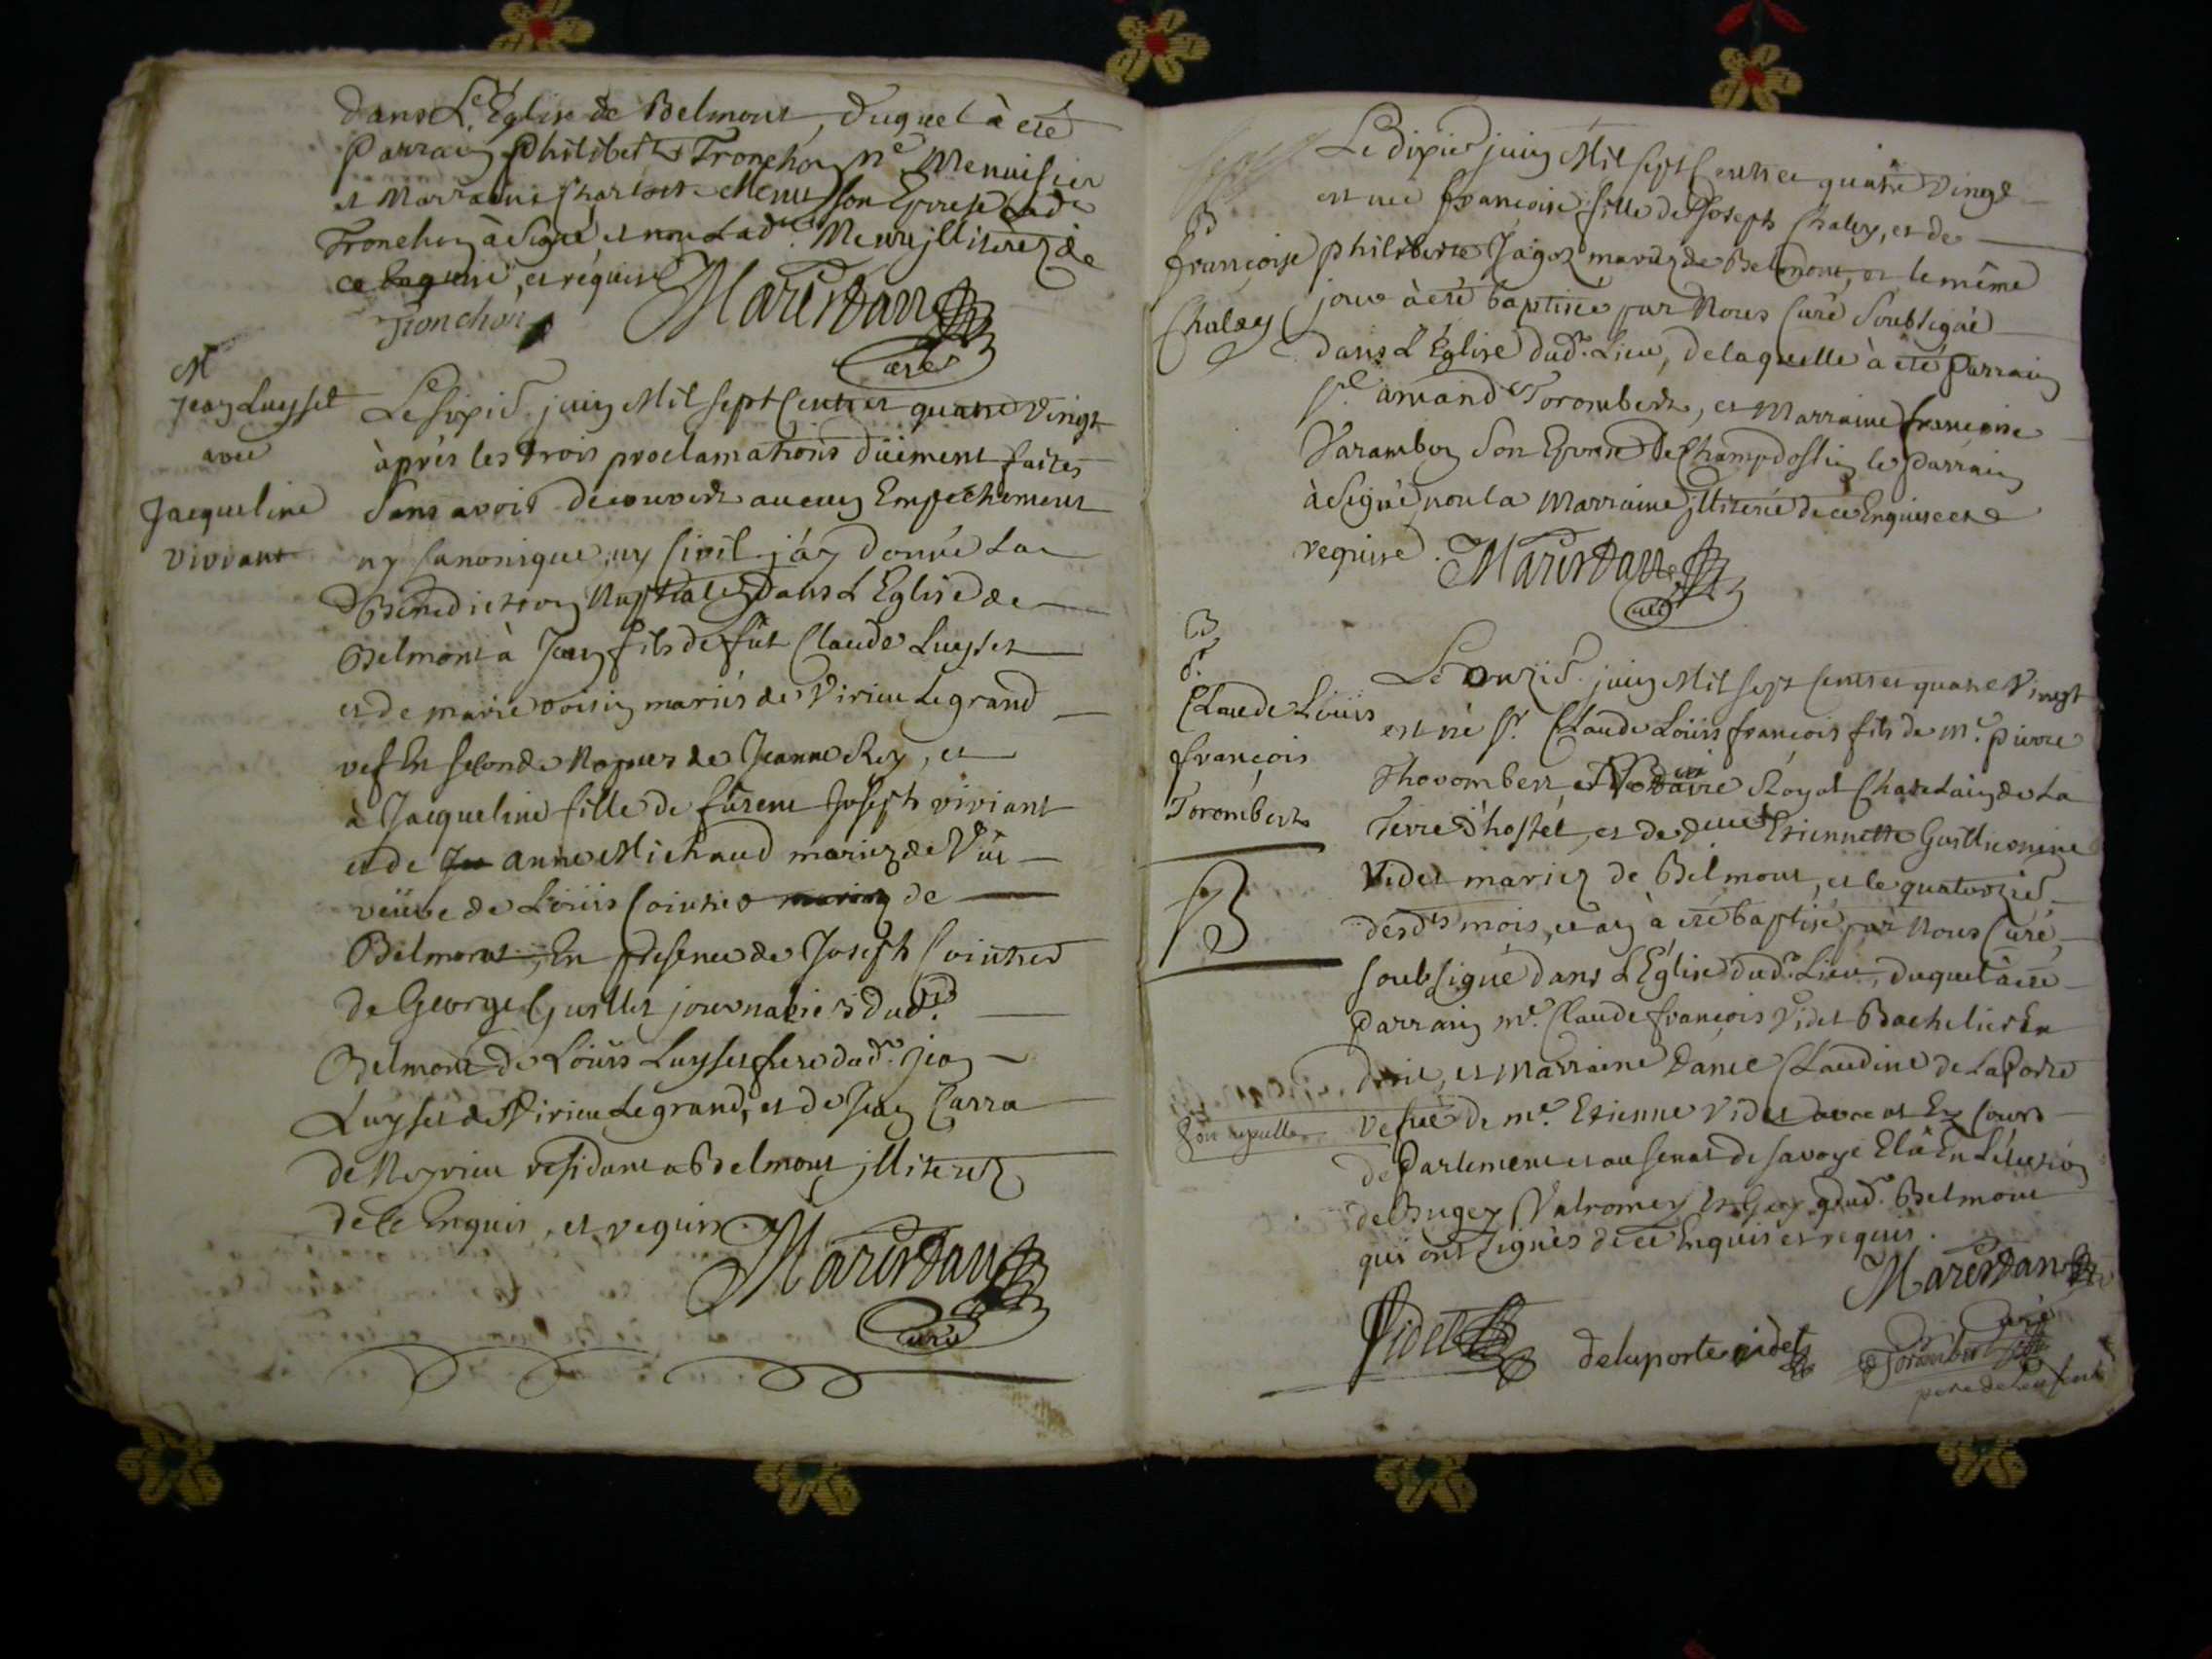 Dans L'Eglise de Belmont, Duquel à eté
Parrain Philibert Tronchon Me. Menuisier
et Marraine Charlote Menu son Epouse Led.
Tronchon à Signé et non Lad.e Menu jlliterez de
ce Enquise, et réquise
Tronchon Marestan
curé
M
Jean Luyset
avec
Jacqueline
Viviant
Le sixie. juin Mil sept Cents et quatre Vingt
après les trois proclamations düement faites
Sans avoir découvert aucun Empechement
ny Canonique, ny Civil j'ay donné La
Bénédiction Nuptiale dans L'Eglise de
Belmont à Jean fils de fût Claude Luyset
et de marie voisin mariés de Virieu Le grand
vef En seconde Nopces de Jeanne Rey, et
à Jacqueline fille de fûrent Joseph viviant
et de anne Michaud mariez de Vüe
veüve de Loüis Cointier de
Belmont, En présence de Joseph Cointier
de George Guillet journaliers dud.
Belmont de Loüis Luyset frere dud. jean
Luyset de Virieu Le grand, et de Jean Carra
de Neyrieu residant a Belmont jlliterez
de Ce Enquis, et requis.
Marestan
Curé
Le dixie. juin Mil sept Cents et quatre Vingt
est née françoise fille de Joseph Chaley, et de
B
françoise
Chaley
philiberte Jagoz mariez de Belmont, et le même
jour à eté baptisée par Nous Curé Soubsigné
dans L'Eglise dud. Lieu, de laquelle à eté Parrain
Sr. amand Torombert, et Marraine françoise
Varambon Son Epouse de Champdossin le Parrain
à Signé non la Marraine jlliterée de ce Enquise et
requise. Marestan
curé
B
Sr.
Claude Loüis
françois
Torombert
B
Le onzie. juin Mil sept Cents et quatre Vingt
est né Sr. Claude Loüis françois fils de Me. pierre
Thorombert Notaire Royal Chatelain de La
Terre d'hostel, et de delle Etiennette Guillleonine
Videt mariez de Belmont, et le quatorzie.
desds mois, et an à eté baptisé par Nous Curé
soubsigné dans L'Eglise dud. Lieu, duquel à eté
Parrain Me. Claude françois Videt Bachelier En
droit, et Marraine Dame Claudine de LaPorte
vefue de Me. Etienne Videt avocat En Cours
de Parlement et au senat de savoye Elû En L'élection
de Bugey Valromey Et Gex dud. Belmont
qui ont Signés de ce Enquis et requis.
Marestan
curé
Videt delaporte videt Torombert
pere de L'enfant